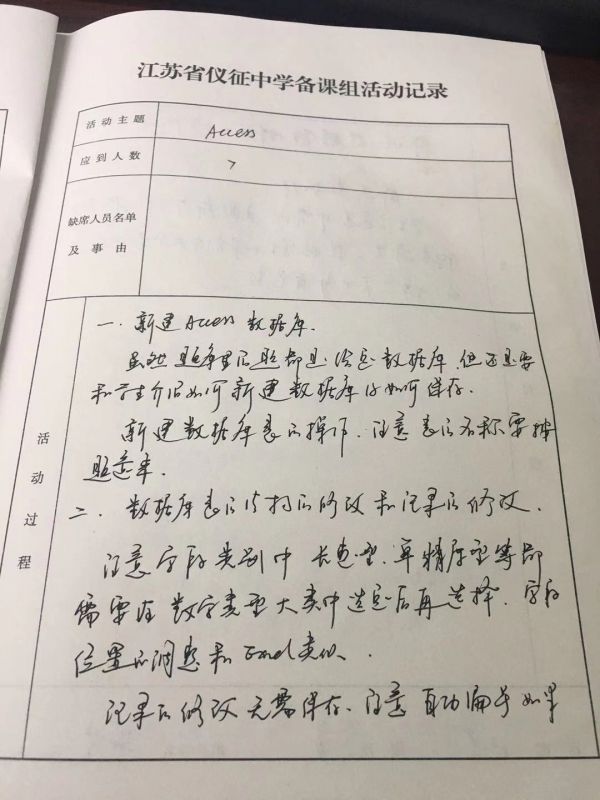 江苏省仪征中学备课组活动记录
活动主题
Access
应到人数
7
缺席人员名单
及事由
活动过程
一. 新建Access数据库.
虽然题库里的题都是给定数据库,但还是要
和学生介绍如何新建数据库及如何保存.
新建数据库表的操作.注意表的名称要按
题意来.
二. 数据库表的结构的修改和记录的修改.
注意字段类别中长整型.单精度型等都
需要在数字类型大类中选定后再选择.字段
位置的调整和Excel类似.
记录的修改无需保存.注意自动编号如果